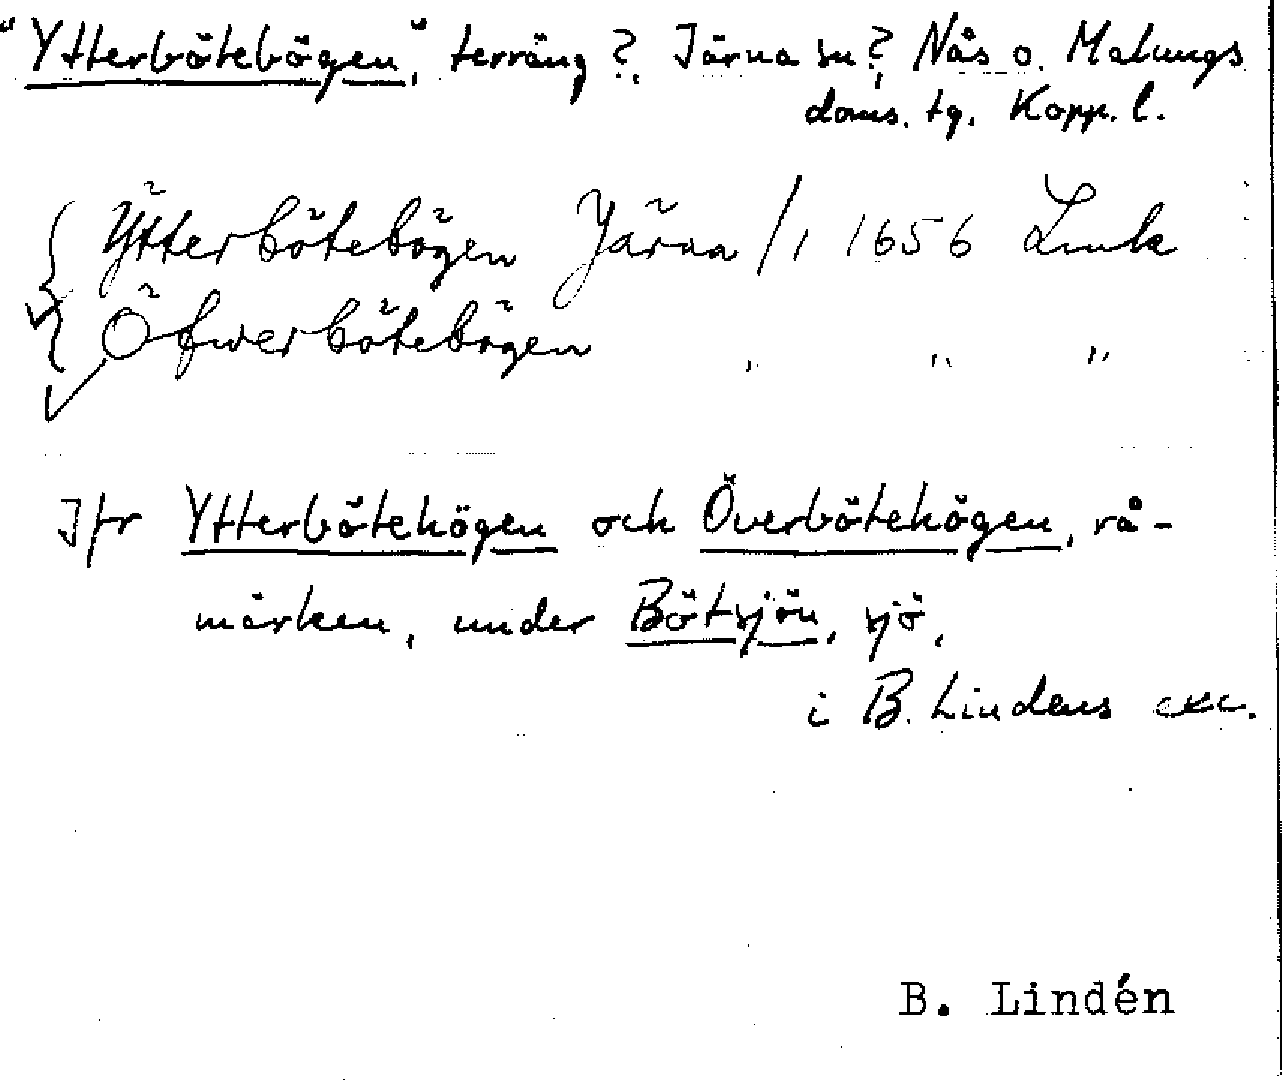 "Ytterbötebögen," terräng?, Järna sn?, Nås o. Malungs
doms. tg. Kopp. l.
Ytterbötebögen Järna /1 1656 Lmk
Öfwerbötebögen " " "
Jfr Ytterbötehögen och Överbötehögen, rå-
märken, under Bötsjön, sjö,
i B. Lindens exc.
B. Lindén